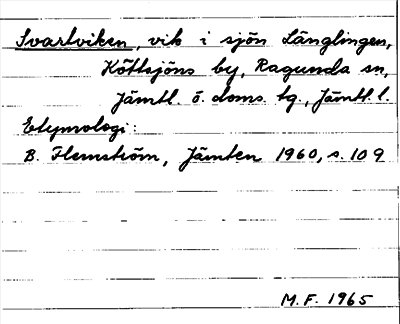 Svartviken, vik i sjön Länglingen,
Köttsjöns by, Ragunda sn,
Jämtl. ö. doms. tg., Jämtl. l.
Etymologi:
B. Flemström, Jämten 1960, s. 109
M.F. 1965